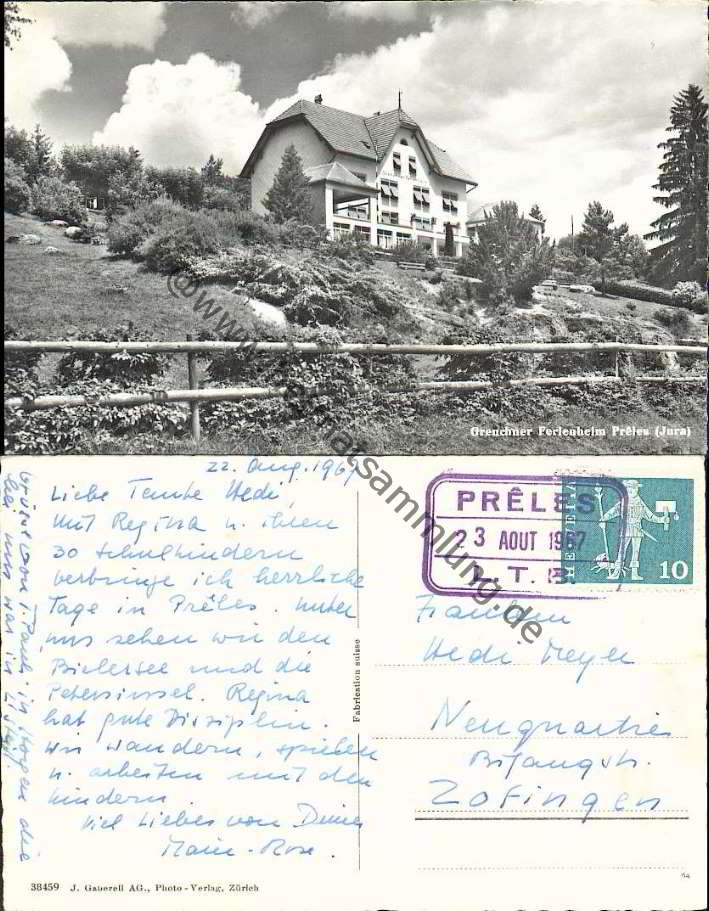 Grenchner Ferienheim Prêles (Jura)
22. Aug. 1967
Liebe Tante Hedi,
Mit Regina u. ihren
30 Schulkindern
verbringe ich herrliche
Tage in Prêles. Unter
uns sehen wir den
Bielersee und die
Petersinsel. Regina
hat gute Disziplin.
Wir wandern, spielen
u. arbeiten mit den
Kindern.
Viel Liebes von Deiner
Marie-Rose.
Grüsse von T. in die
bei uns war in
PRÊLES
23 AOUT 1967
V. T. B.
HELVETIA
10
Fräulein
Hedi Meyer
Neuquartier
Bifangstr.
Zofingen
Fabrication suisse
38459 J. Gaberell AG., Photo-Verlag, Zürich
©www.heimatsammlung.de